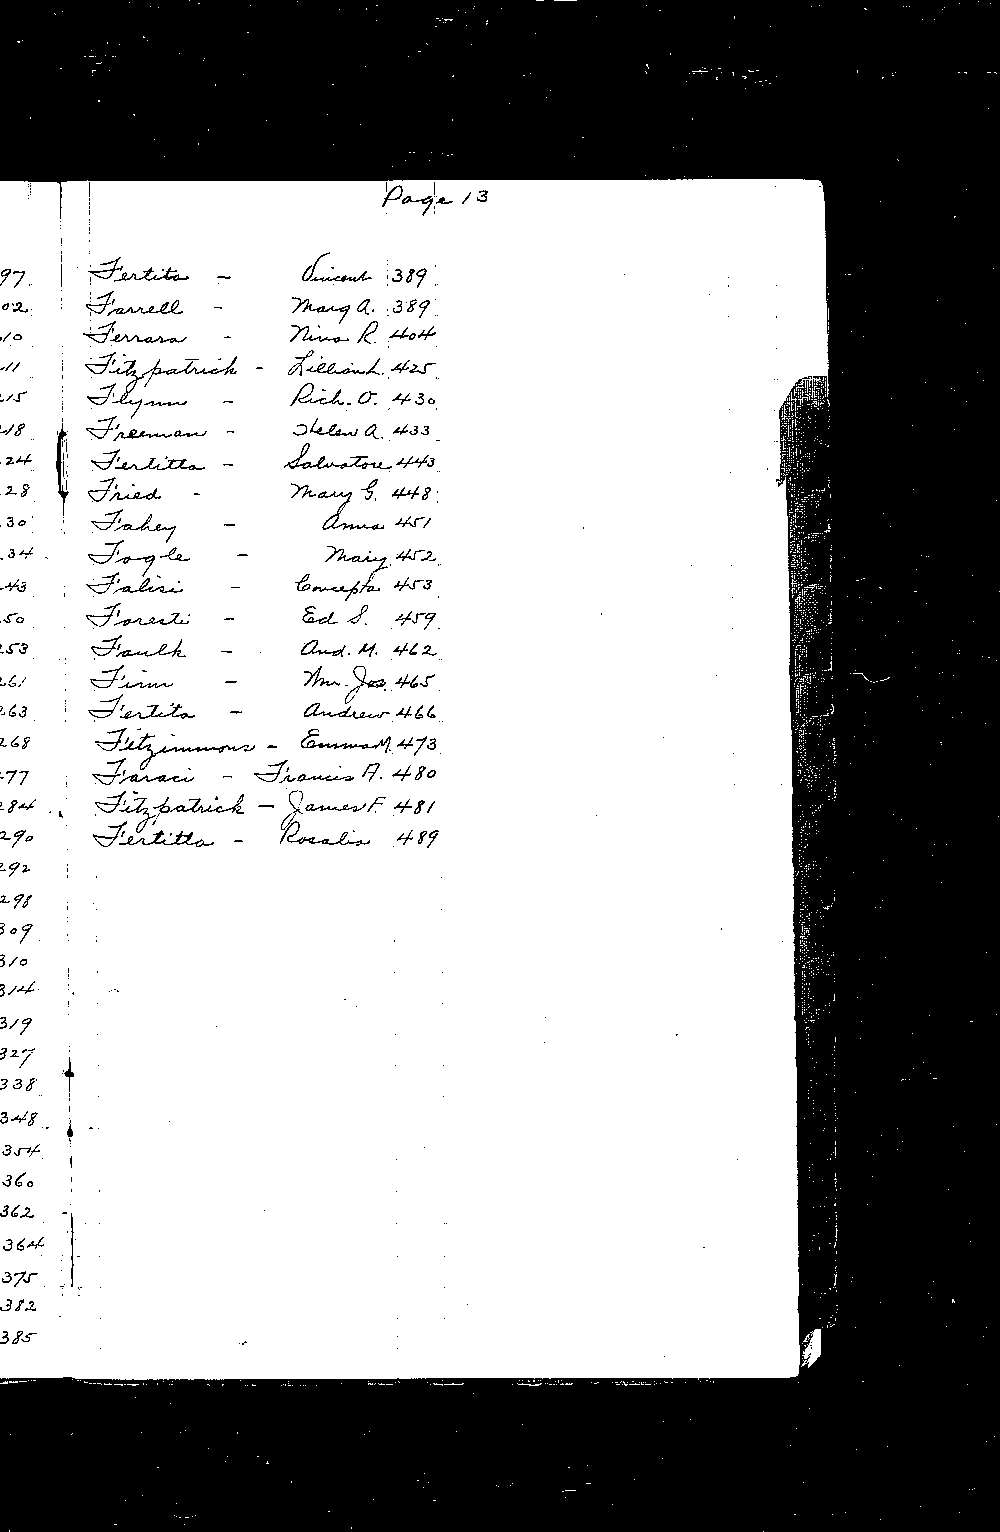 Page 13
97 Fertita - Vincent 389
02 Farrell - Mary A. 389
10 Ferrara - Nina R. 404
11 Fitzpatrick - Lillian L. 425
215 Flynn - Rich. O. 430
218 Freeman - Helen A. 433
224 Fertitta - Salvatore 443
228 Fried - Mary G. 448
230 Fahey - Anna 451
234 Fogle - Mary 452
243 Falisi - Concepta 453
250 Foresti - Ed S. 459
253 Faulk - And. M. 462
261 Finn - Wm. Jos. 465
263 Fertita - Andrew 466
268 Fitzimmons - Emma M. 473
277 Faraci - Francis A. 480
284 Fitzpatrick - James F. 481
290 Fertitta - Rosalia 489
292
298
309
310
314
319
327
338
348
354
360
362
364
375
382
385